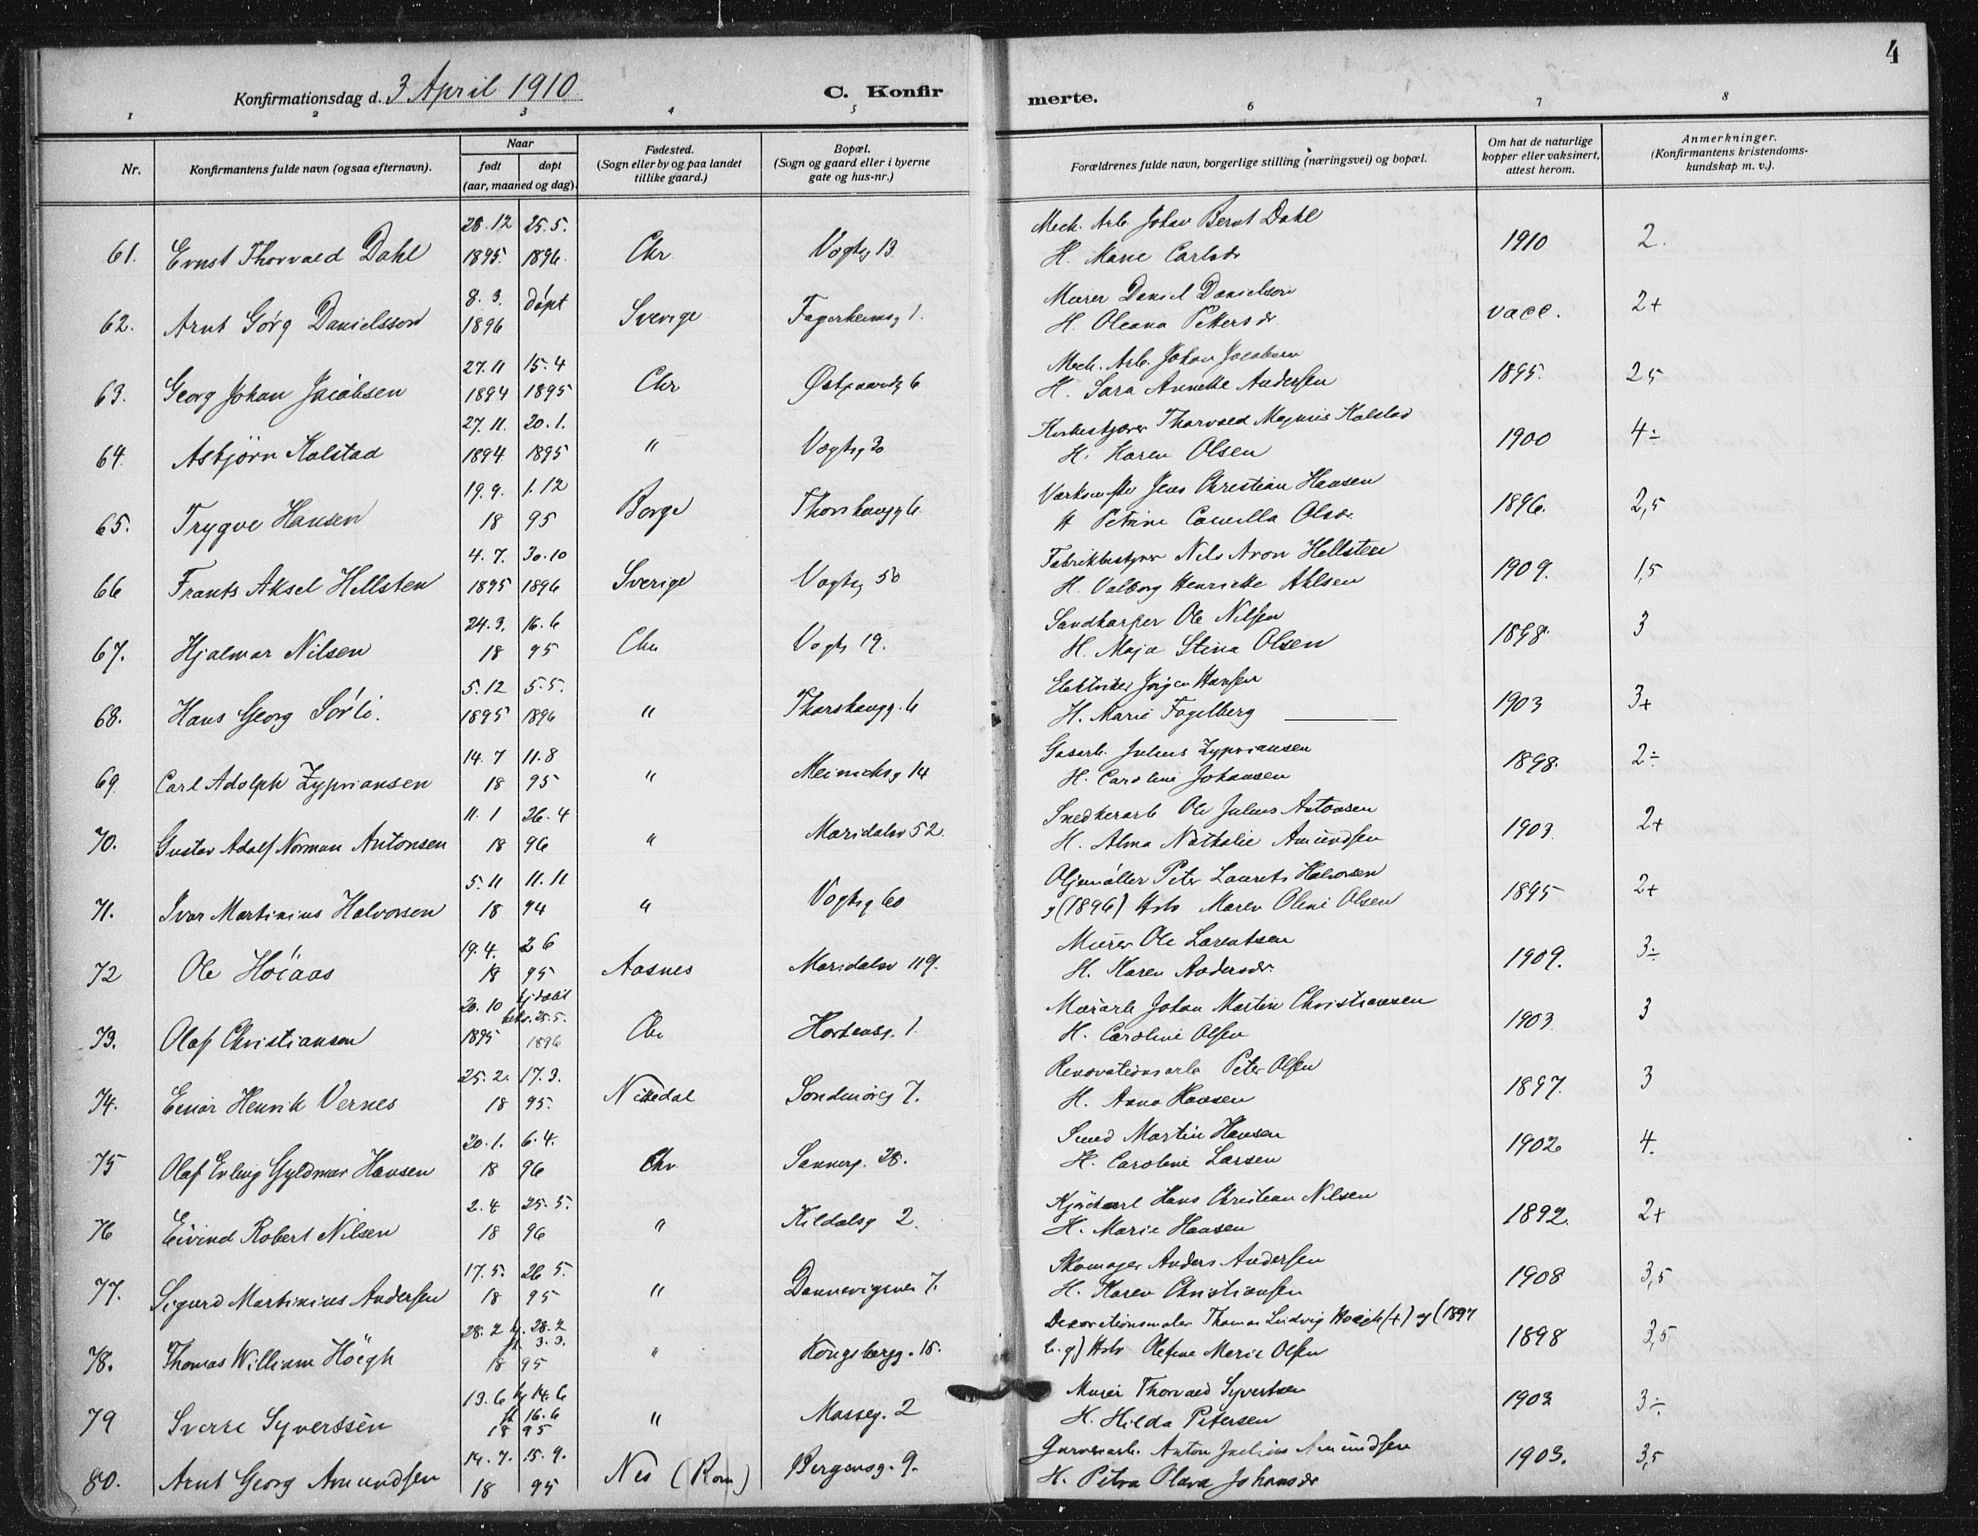 4
Konfirmationsdag d. 3 April 1910. C. Konfirmerte.
1 2 3 4 5 6 7 8
Nr. Konfirmantens fulde navn (ogsaa efternavn). Naar født døpt (aar, maaned og dag). Fødested. (Sogn eller by og paa landet tillike gaard.) Bopæl. (Sogn og gaard eller i byerne gate og hus-nr.) Forældrenes fulde navn, borgerlige stilling (næringsvei) og bopæl. Om hat de naturlige kopper eller vaksinert, attest herom. Anmerkninger. (Konfirmantens kristendomskundskap m. v.).
28.12 25.5. Mech. Arb. Johan Bernt Dahl
61. Ernst Thorvald Dahl 1895. 1896. Chr. Vogtsg 13. H. Marie Carlsdr 1910 2.
8. 3. døpt Murer Daniel Danielson
62. Arnt Gørg Danielsson 1896 Sverige Fagerheimsg 1. H. Oleana Pettersdr. vacc. 2+
27.11 15.4 Mech. Arb. Johan Jacobsen
63. Georg Johan Jacobsen 1894 1895 Chr Østgaardsg 6 H. Sara Annette Andersen 1895. 2 5
27.11. 20.1. Kirkestjener Thorvald Magnus Kolstad
64. Asbjørn Kolstad 1894 1895 " Vogtsg 30 H. Karen Olsen 1900 4÷
19.9. 1.12 Værksmster Jens Christian Hansen
65. Trygve Hansen 18 95 Borge Thorshaugg 6. H Petrine Camilla Olsdr. 1896. 2,5
4.7. 30.10 Fabrikbestyrer Nils Aron Hellsten
66 Frants Aksel Hellsten 1895 1896 Sverige Vogtsg 50 H. Valborg Henriette Ahlsen 1909. 1,5
24.3. 16.6 Sandkarper Ole Nilsen
67. Hjalmar Nilsen 18 95 Chr Vogts 19. H. Maja Stina Olsen 1898. 3
5.12 5.5. Elektriker Jørgen Hansen
68. Hans Georg Sørli. 1895 1896 " Thorshaugg. 6 H. Marie Fagelberg 1903 3+
14.7 11.8 Gasarb. Julius Zypriansen
69. Carl Adolph Zypriansen 18 95 " Meinichsg 14 H. Caroline Johansen 1898. 2÷
11.1 26.4 Snedkerarb Ole Julius Antonsen
70. Gustav Adolf Norman Antonsen 18 96 " Maridalsv 52. H. Alma Nathalie Amundsen 1903. 2+
5.11 11.11 Oljemøller Peter Laurets Halvorsen
71. Ivar Martinius Halvorsen 18 94 " Vogtsg 60 g (1896) Hstr Maren Oline Olsen 1895 2+
19.4. 2 6 Murer Ole Larentsen
72 Ole Høiaas 18 95 Aasnes Maridalsv 119. H. Karen Andersdr. 1909. 3÷
20.10 hj.døbt bekr. 25.5. Murarb Johan Martin Christiansen
73. Olaf Christiansen 1895 1896 Chr Hortensg. 1. H. Caroline Olsen 1903. 3
25.2. 17.3. Renovationsarb Peter Olsen
74. Einar Henrik Vernes 18 95. Nittedal Søndmørsg 7. H. Anna Hansen 1897. 3
20.1. 6.4. Smed Martin Hansen
75 Olaf Erling Gyldmar Hansen 18 96 Chr Sannerg. 28. H. Caroline Larsen 1902 4.
2.4 25.5. Hans Christian Nilsen
76 Eivind Robert Nilsen 18 96 " Kildalsg 2. H. Marie Hansen 1892. 2+
17.5. 26 5. Skomager Anders Andersen
77. Sigurd Martinius Andersen 18 95 " Dannevigsvei 7. H. Karen Christiansen 1908 3,5
28.2 hj. 28.2 st. 3.3. Dekorationsmaler Thomas Ludvig Høiegh (+) g (1897
78. Thomas William Höegh 18 95 " Kongsbergg. 15. b.g) Hstr Olefine Marie Olsen 1898 3,5
13.6 hj 14.6 st 16.6 Murer Thorvald Syvertsen
79 Sverre Syverssen 18 95 " Masseg. 2 H. Hilda Petersen 1903 3÷
14.7. 15.9. Garverarb. Anton Julius Amundsen
80. Arnt Georg Amundsen 18 95 Nes (Rom) Bergensg. 9. H. Petra Olava Johansdr 1903. 3,5